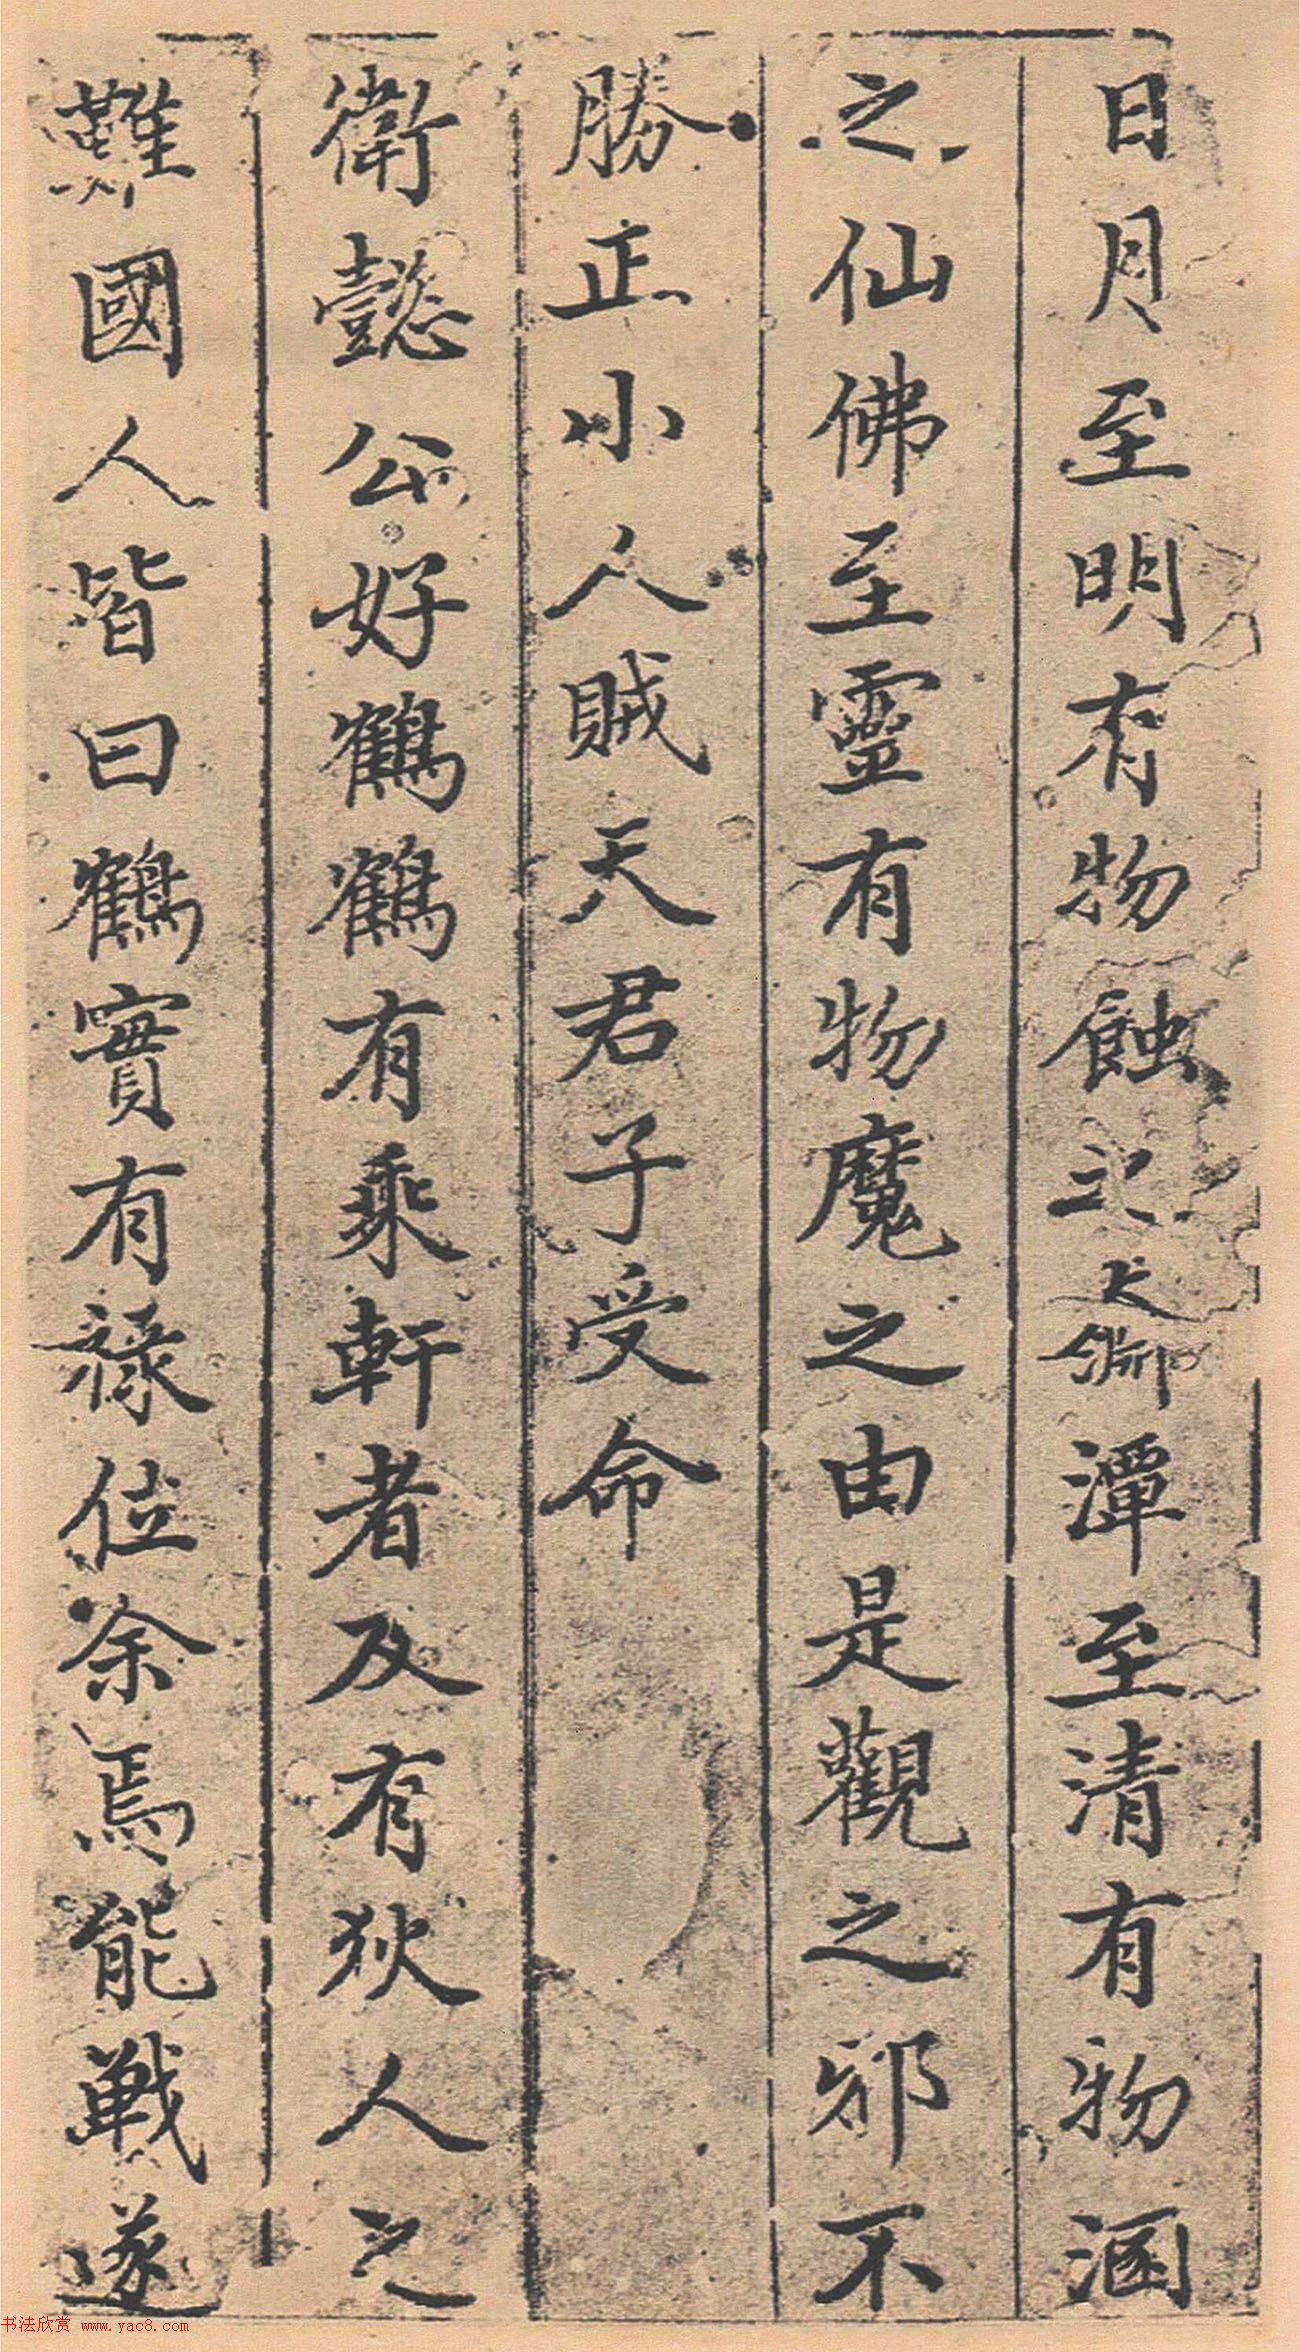 日月至明有物蝕之
潭至清有物涵
之仙佛至靈有物魔之由是觀之邪不
勝正小人賊天君子受命
衛懿公好鶴鶴有乘軒者及有狄人之
難國人皆曰鶴實有祿位余焉能戰遂
书法欣赏 www.yac8.com